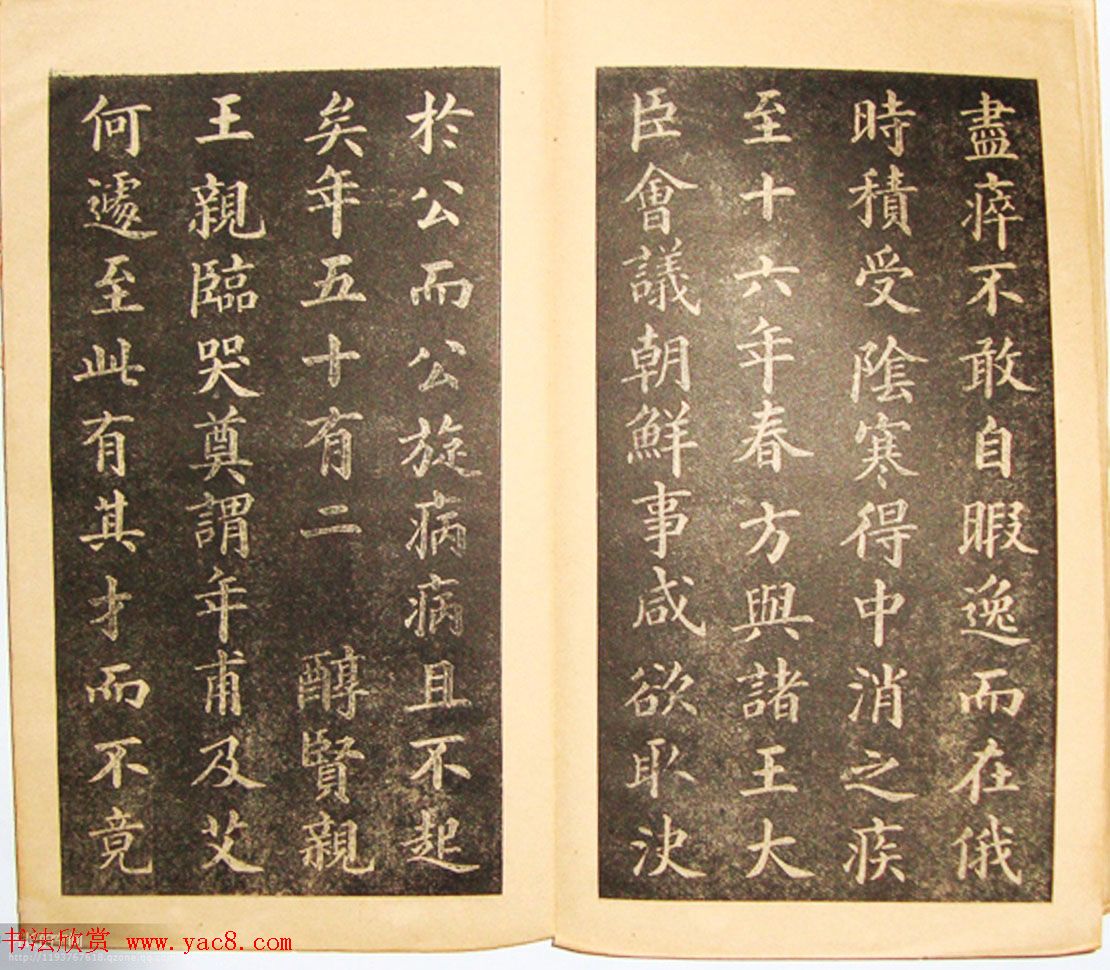 盡瘁不敢自暇逸而在俄
時積受陰寒得中消之疾
至十六年春方與諸王大
臣會議朝鮮事咸欲取決
於公而公旋病病且不起
矣年五十有二　醇賢親
王親臨哭奠謂年甫及艾
何遽至此有其才而不竟
书法欣赏 www.yac8.com
http://1193767618.qzone.qq.com